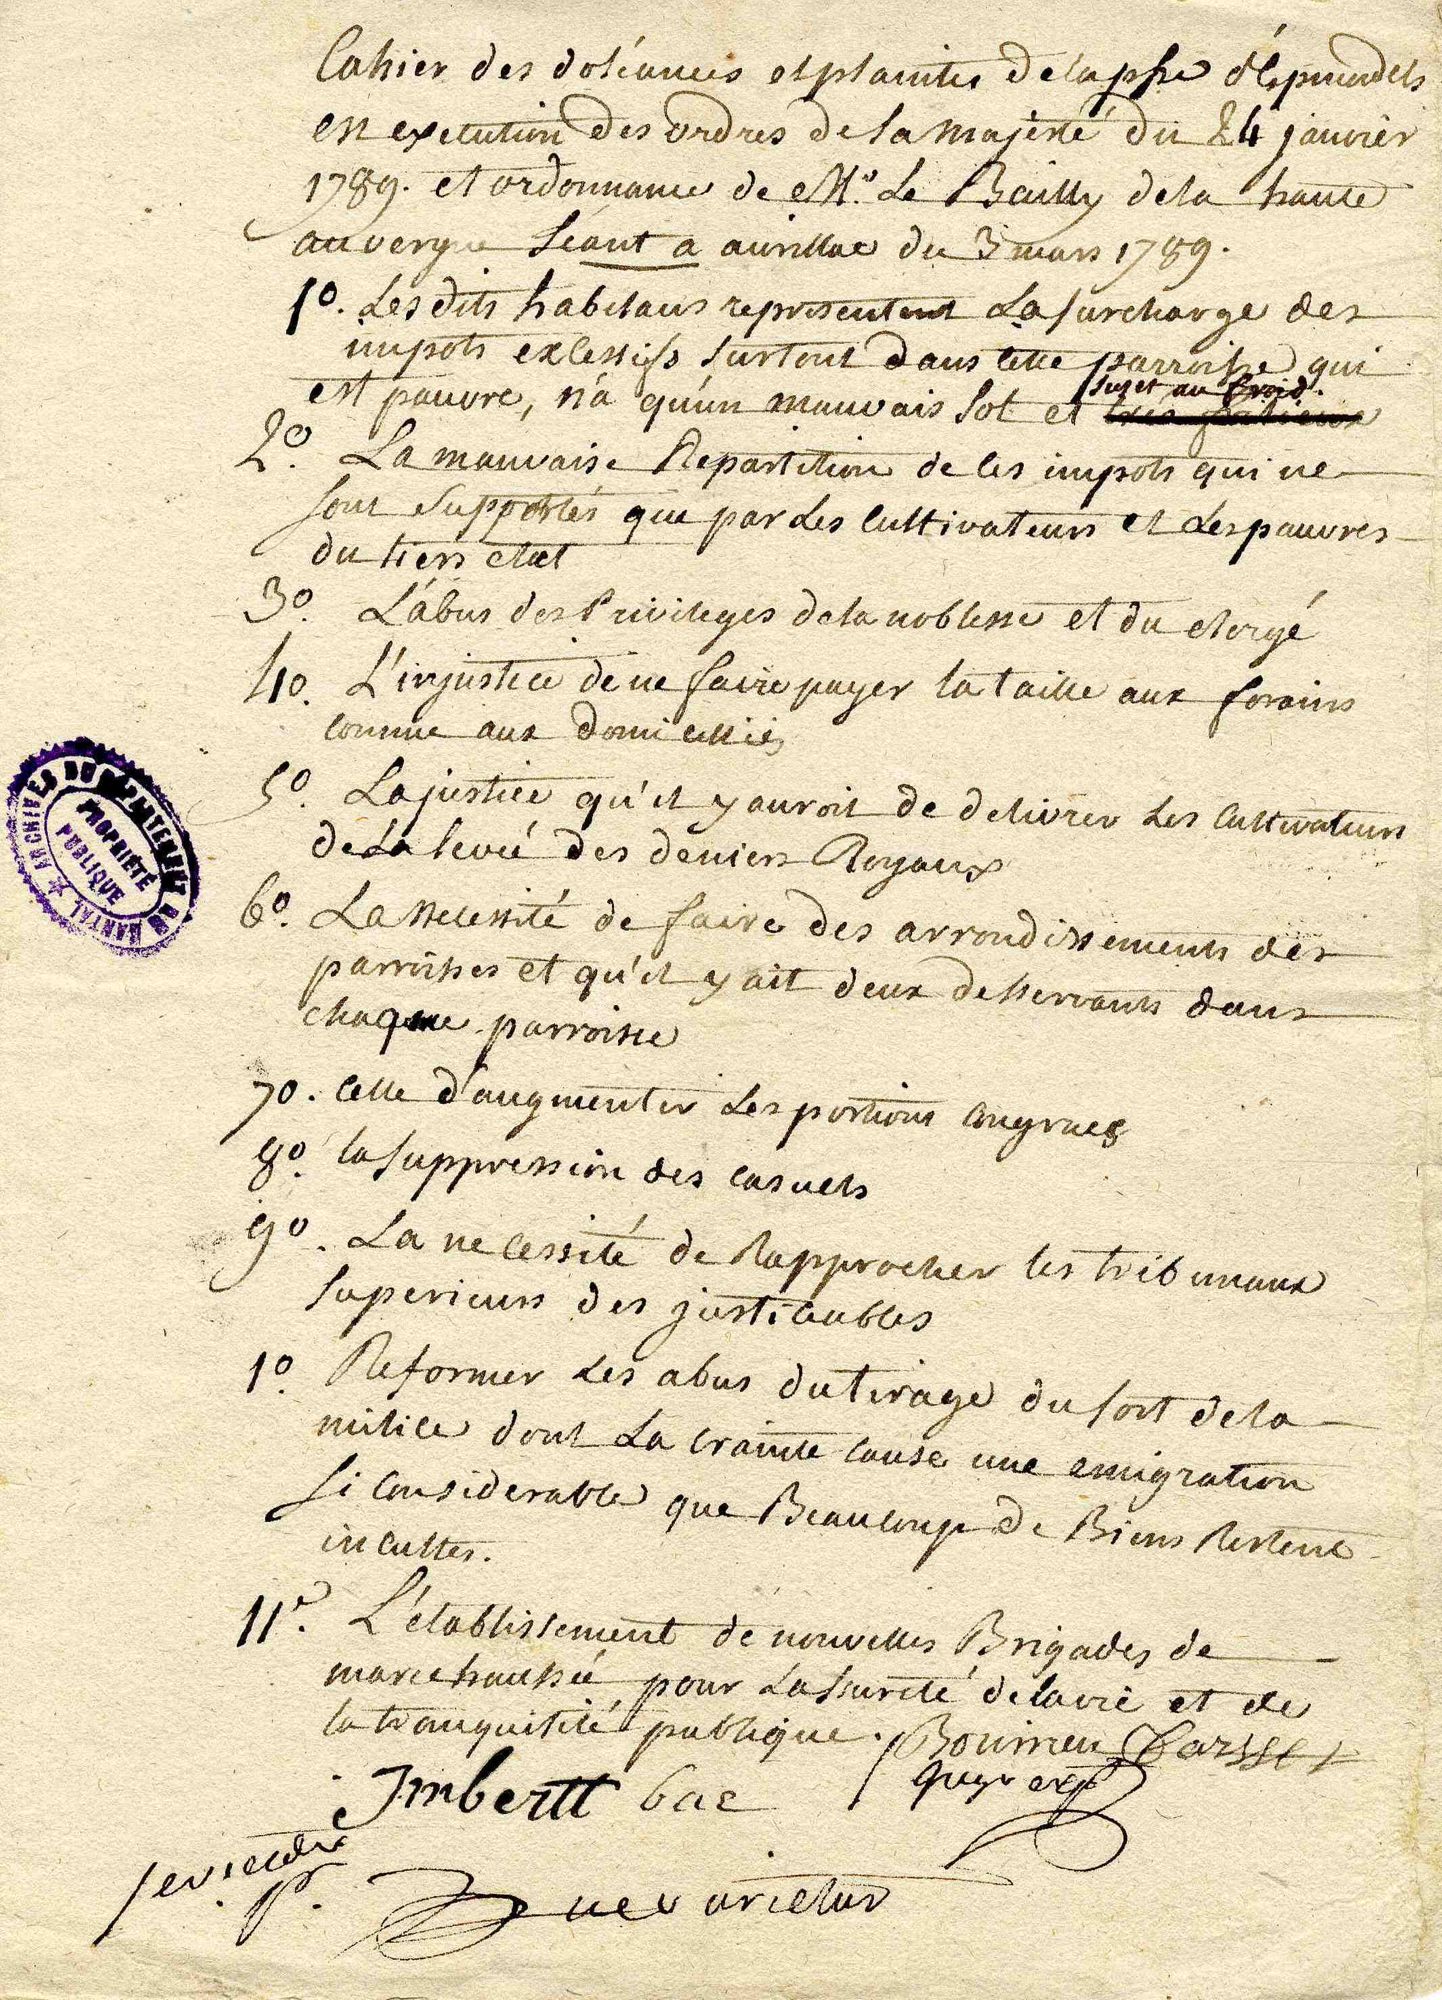 Cahier des doléances et plaintes de la psse d'Espinadels
en execution des ordres de sa majesté du 24 janvier
1789. et ordonnance de Mr. Le Bailly de la haute
auvergne séant a aurillac du 3 mars 1789.
1o. Les dits habitans representent La surcharge des
impots excessifs surtout dans cette parroisse qui
est pauvre, n'a qu'un mauvais sol et
sujet au froid.
2o. La mauvaise Repartition de ces impots qui ne
sont supportés que par Les cultivateurs et Les pauvres
du tiers etat
3o. L'abus des Privileges de la noblesse et du clergé
4o. L'injustice de ne faire payer la taille aux forains
comme aux domiciliés
5o. La justice qu'il y auroit de delivrer Les Cultivateurs
de La levée des deniers Royaux
6o. La necessité de faire des arrondissements des
parroisses et qu'il y ait deux desservants dans
chaque parroisse
7o. celle d'augmenter Les portions congrues
8o. la suppression des casuels
9o. La necessité de Rapprocher les tribunaux
superieurs des justiciables
1o. Reformer Les abus du tirage du sort de la
milice dont La crainte cause une emigration
si considerable que Beaucoup de Biens Restent
incultes.
11e. L'etablissement de nouvelles Brigades de
marechaussée pour La sureté de la vie et de
la tranquilité publique.
Imbertt bac
Ne varietur
ARCHIVES DU DÉPARTEMENT DU CANTAL
PROPRIÉTÉ
PUBLIQUE